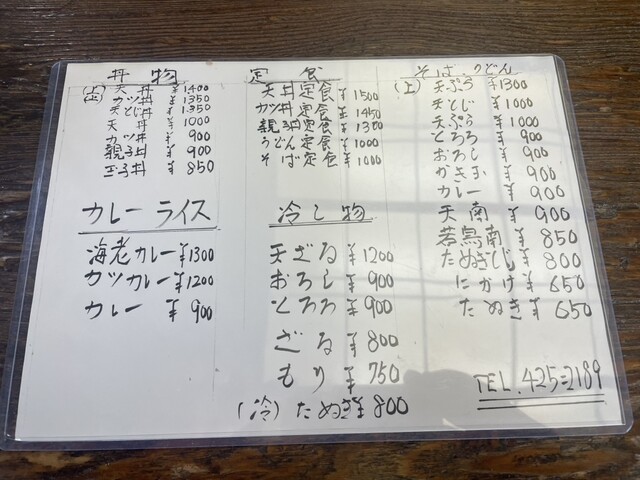 丼物
(上)天丼 ¥1400
(上)カツ丼 ¥1350
天とじ丼 ¥1350
天丼 ¥1000
カツ丼 ¥900
親子丼 ¥900
玉子丼 ¥850
カレーライス
海老カレー ¥1300
カツカレー ¥1200
カレー ¥900
定食
天丼定食 ¥1500
カツ丼定食 ¥1450
親子丼定食 ¥1300
うどん定食 ¥1000
そば定食 ¥1000
冷し物
天ざる ¥1200
おろし ¥900
とろろ ¥900
ざる ¥800
もり ¥750
(冷)たぬき ¥800
そばうどん
(上)天ぷら ¥1300
天とじ ¥1000
天ぷら ¥1000
とろろ ¥900
おろし ¥900
かき玉 ¥900
カレー ¥900
天南 ¥900
若鳥南 ¥850
たぬきとじ ¥800
にかけ ¥650
たぬき ¥650
TEL.425=2189